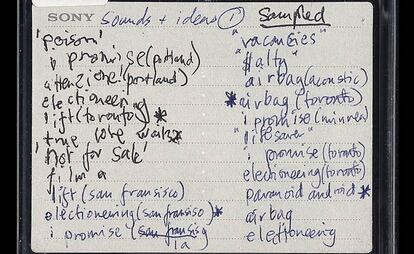 SONY sounds + ideas ① Sampled
'poison'
i promise (portland)
attenzione! (portland)
electioneering
lift (toronto) *
true love waits *
'not for sale'
film a
lift (san fransisco)
electioneering (san fransiso) *
i promise (san fransis
la
"vacancies"
airbag (acoustic)
* airbag (toronto)
i promise (minnea
"lifesaver"
i promise (toronto)
electioneering (toronto)
paranoid android *
airbag
electioneering